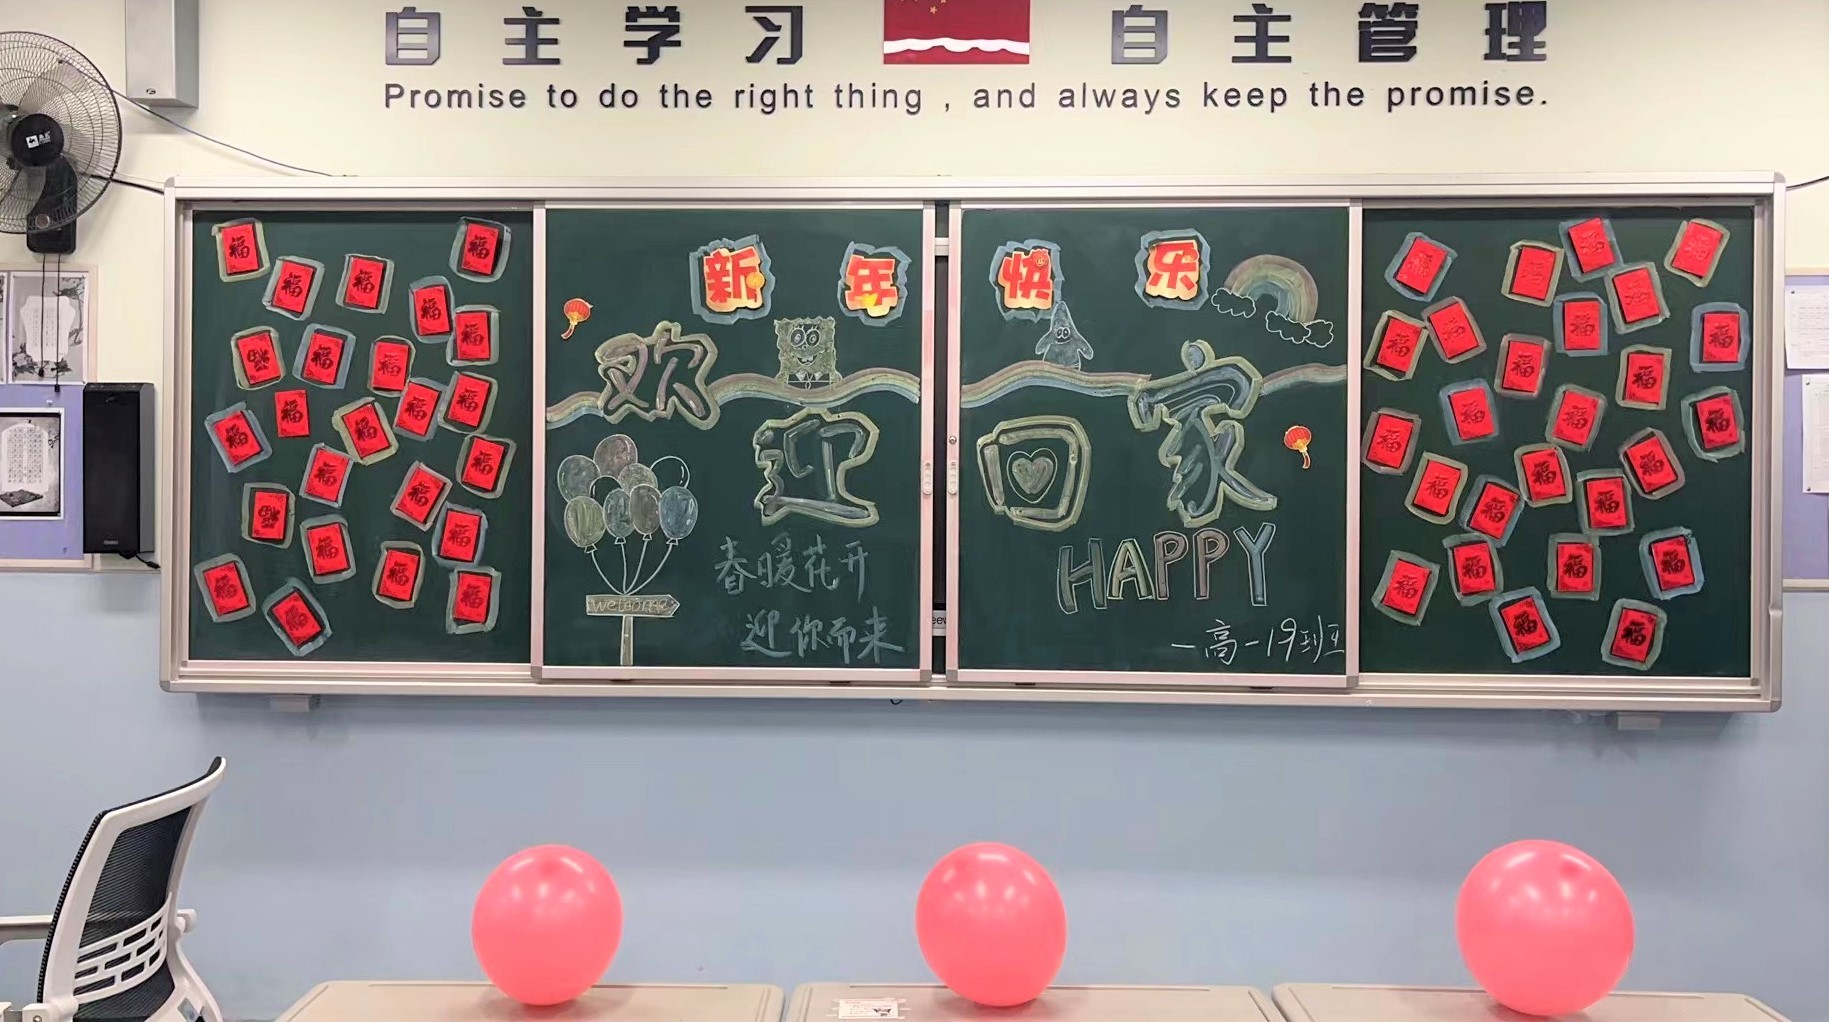 自主学习 自主管理
Promise to do the right thing , and always keep the promise.
新年快乐
欢迎回家
welcome
春暖花开
迎你而来
HAPPY
一高一19班
福 福 福 福 福 福 福 福 福 福 福 福 福 福 福 福 福 福 福 福 福 福 福 福
福 福 福 福 福 福 福 福 福 福 福 福 福 福 福 福 福 福 福 福 福 福 福 福 福 福 福